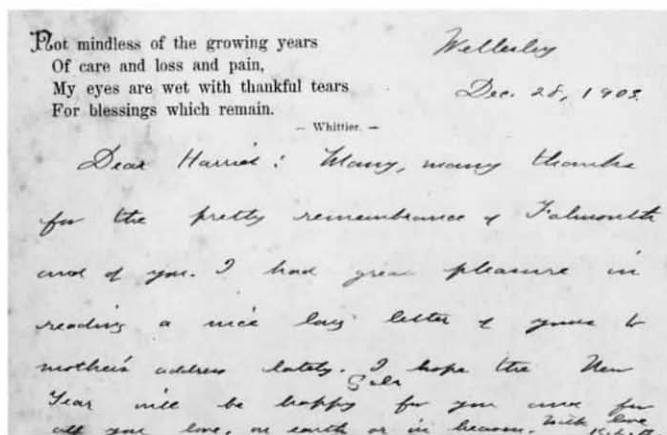 Not mindless of the growing years
Of care and loss and pain,
My eyes are wet with thankful tears
For blessings which remain.
— Whittier. —
Wellesley
Dec. 28, 1903.
Dear Harriet: Many, many thanks
for the pretty remembrance of Falmouth
and of you. I had great pleasure in
reading a nice long letter of yours to
mother's address lately. I hope the New
Year will be happy for you and for
all you love, on earth or in heaven. With love